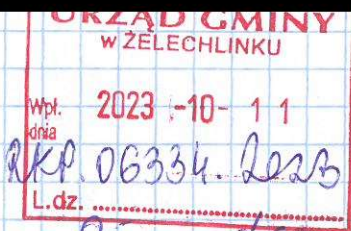 URZĄD GMINY
w ŻELECHLINKU
Wpł. dnia 2023 -10- 1 1
RKP. 06334. 2023
L.dz. ........................